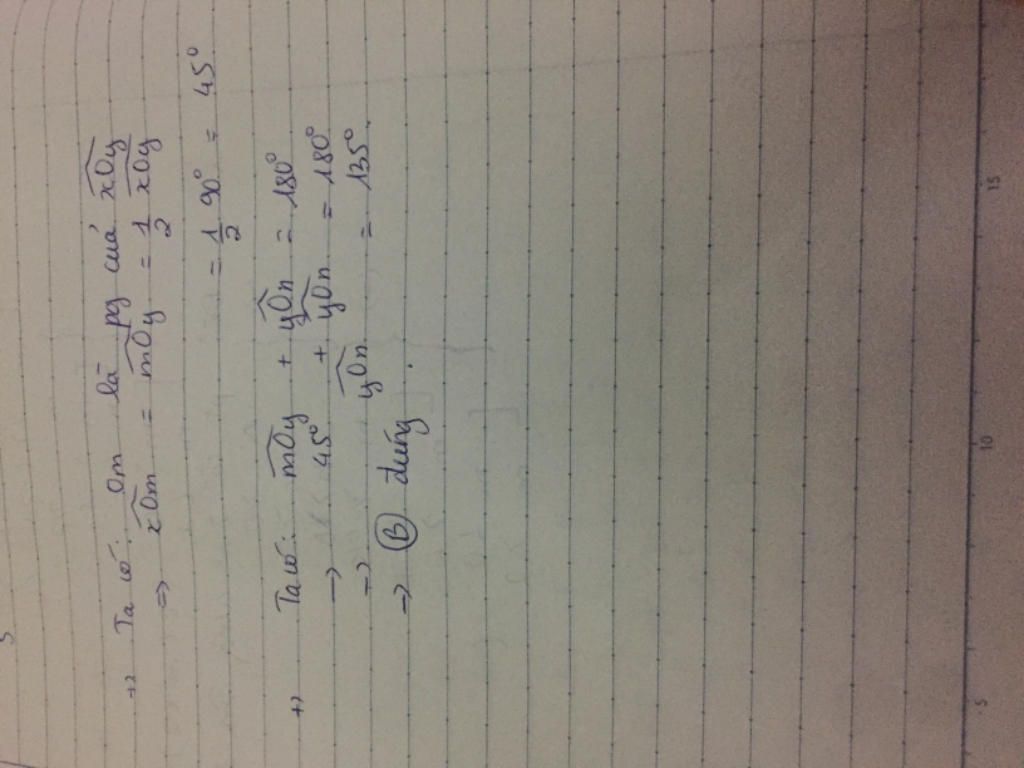 +) Ta có: Om là pg của x̂Oy
=> x̂Om = m̂Oy = 1/2 x̂Oy
= 1/2 90° = 45°
+) Ta có: m̂Oy + ŷOn = 180°
-> 45° + ŷOn = 180°
-> ŷOn = 135°.
-> (B) đúng.
5 10 15